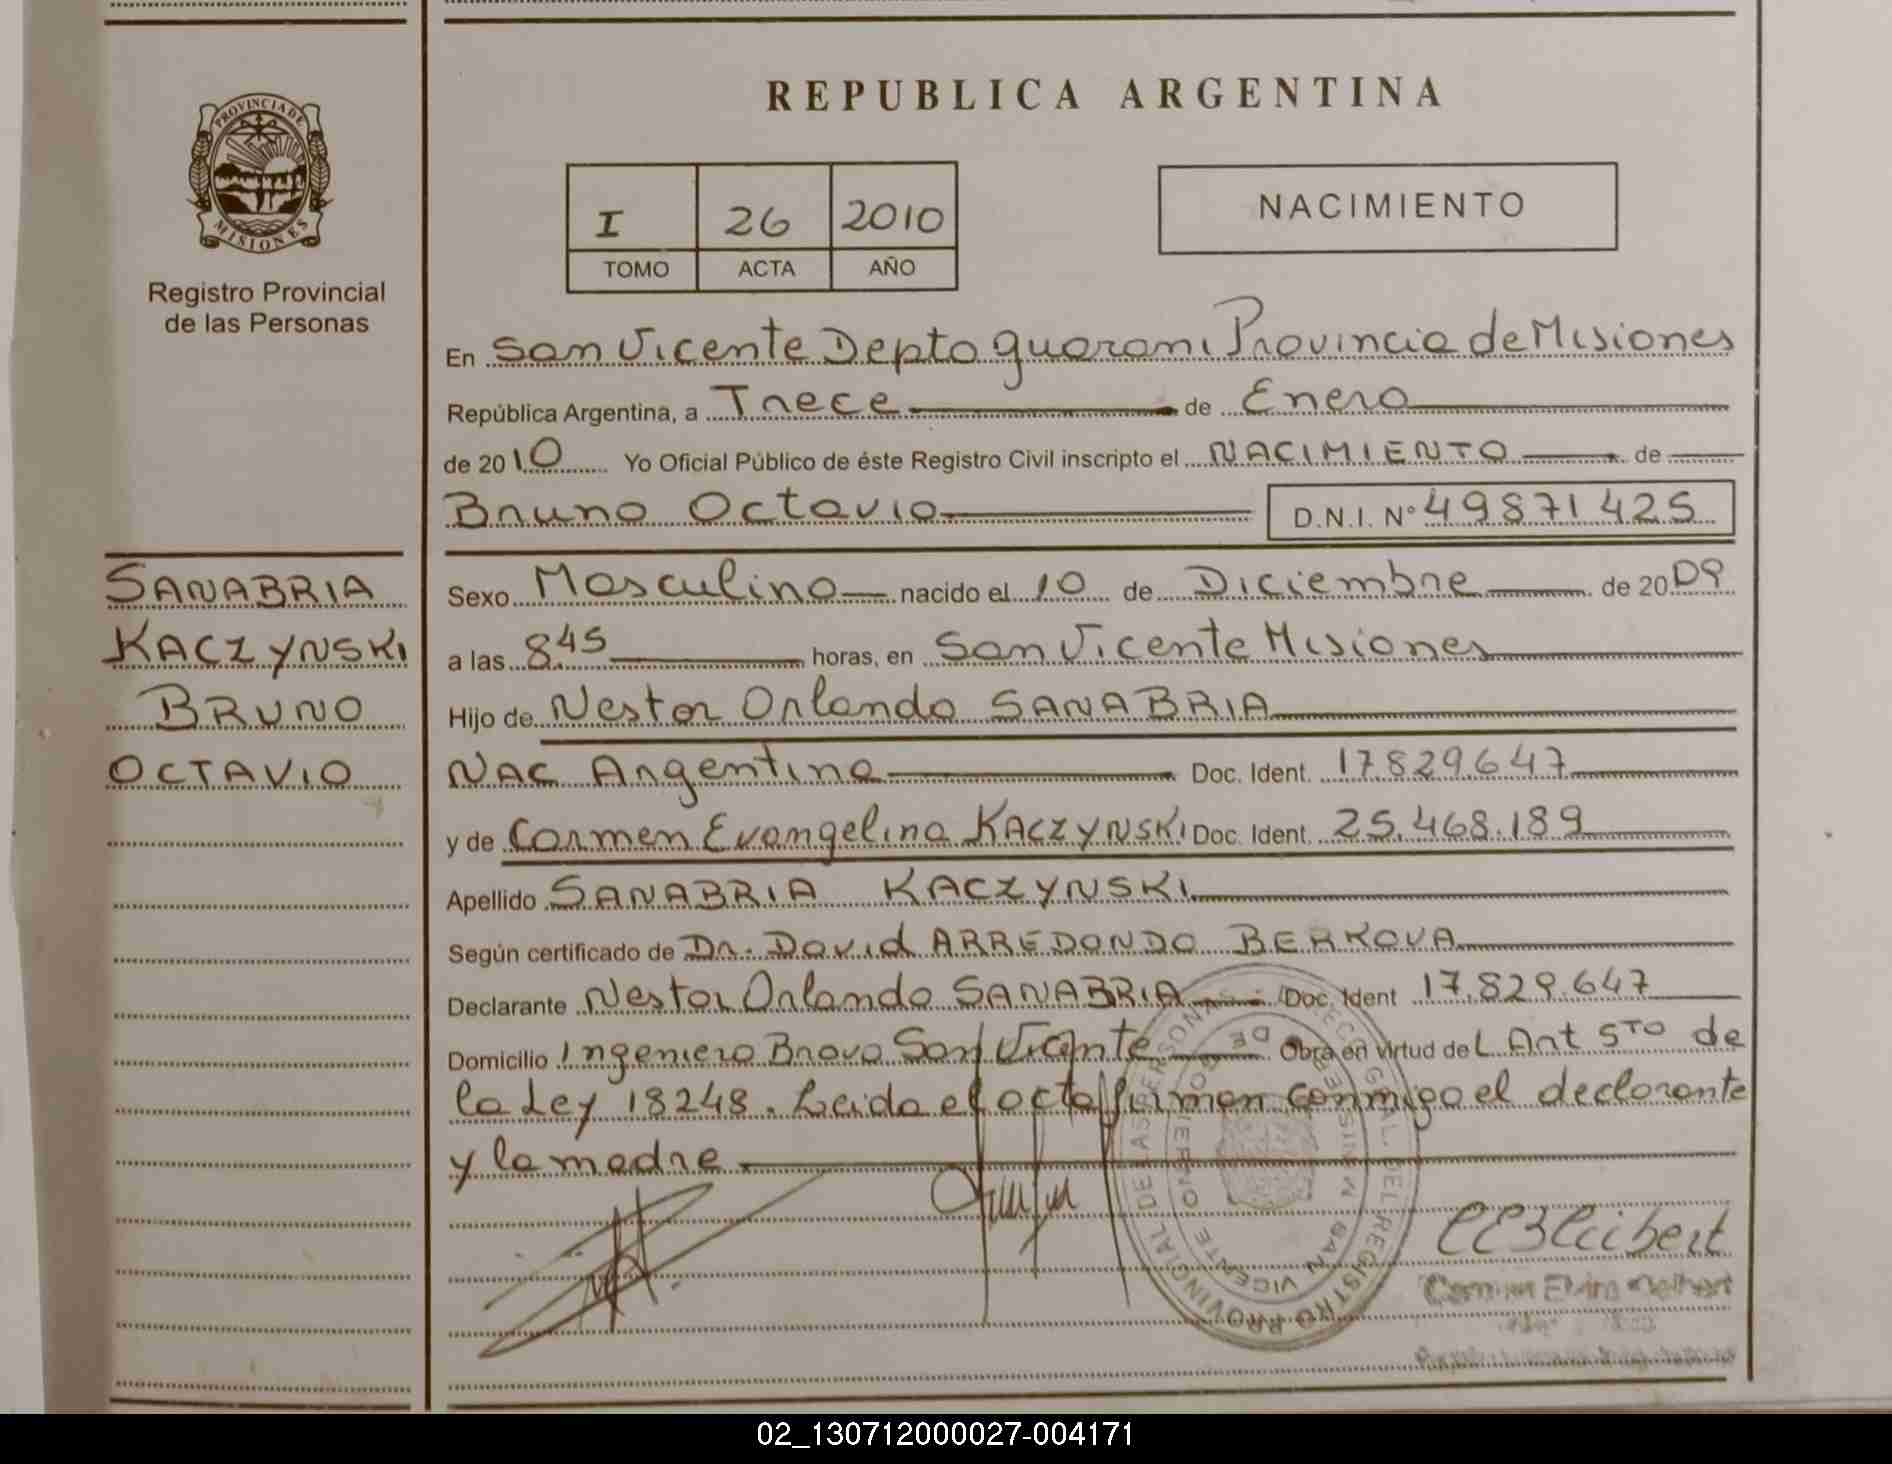 REPUBLICA ARGENTINA
PROVINCIA DE
MISIONES
Registro Provincial
de las Personas
I 26 2010
TOMO ACTA AÑO
NACIMIENTO
En San Vicente Depto guarani Provincia de Misiones
República Argentina, a Trece de Enero
de 2010 Yo Oficial Público de éste Registro Civil inscripto el NACIMIENTO de
Bruno Octavio D.N.I. Nº 49871425
SANABRIA
KACZYNSKI
BRUNO
OCTAVIO
Sexo Masculino nacido el 10 de Diciembre de 2009
a las 8.45 horas, en San Vicente Misiones
Hijo de Nestor Orlando SANABRIA
NAC Argentina Doc. Ident. 17829647
y de Carmen Evangelina KACZYNSKI Doc. Ident. 25.468.189
Apellido SANABRIA KACZYNSKI
Según certificado de Dr. David ARREDONDO BERKOVA
Declarante Nestor Orlando SANABRIA Doc. Ident 17.829.647
Domicilio Ingeniero Bravo San Vicente Obra en virtud del Art 5TO de
la Ley 18248. Leida el acta firman conmigo el declarante
y la madre
DIREC. GRAL. DEL REGISTRO PROVINCIAL DE LAS PERSONAS
SAN VICENTE
02_130712000027-004171